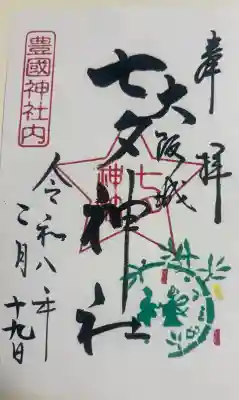 奉拝
大阪城
七夕神社
七夕
神社
豊國神社内
令和八年
二月
十九日